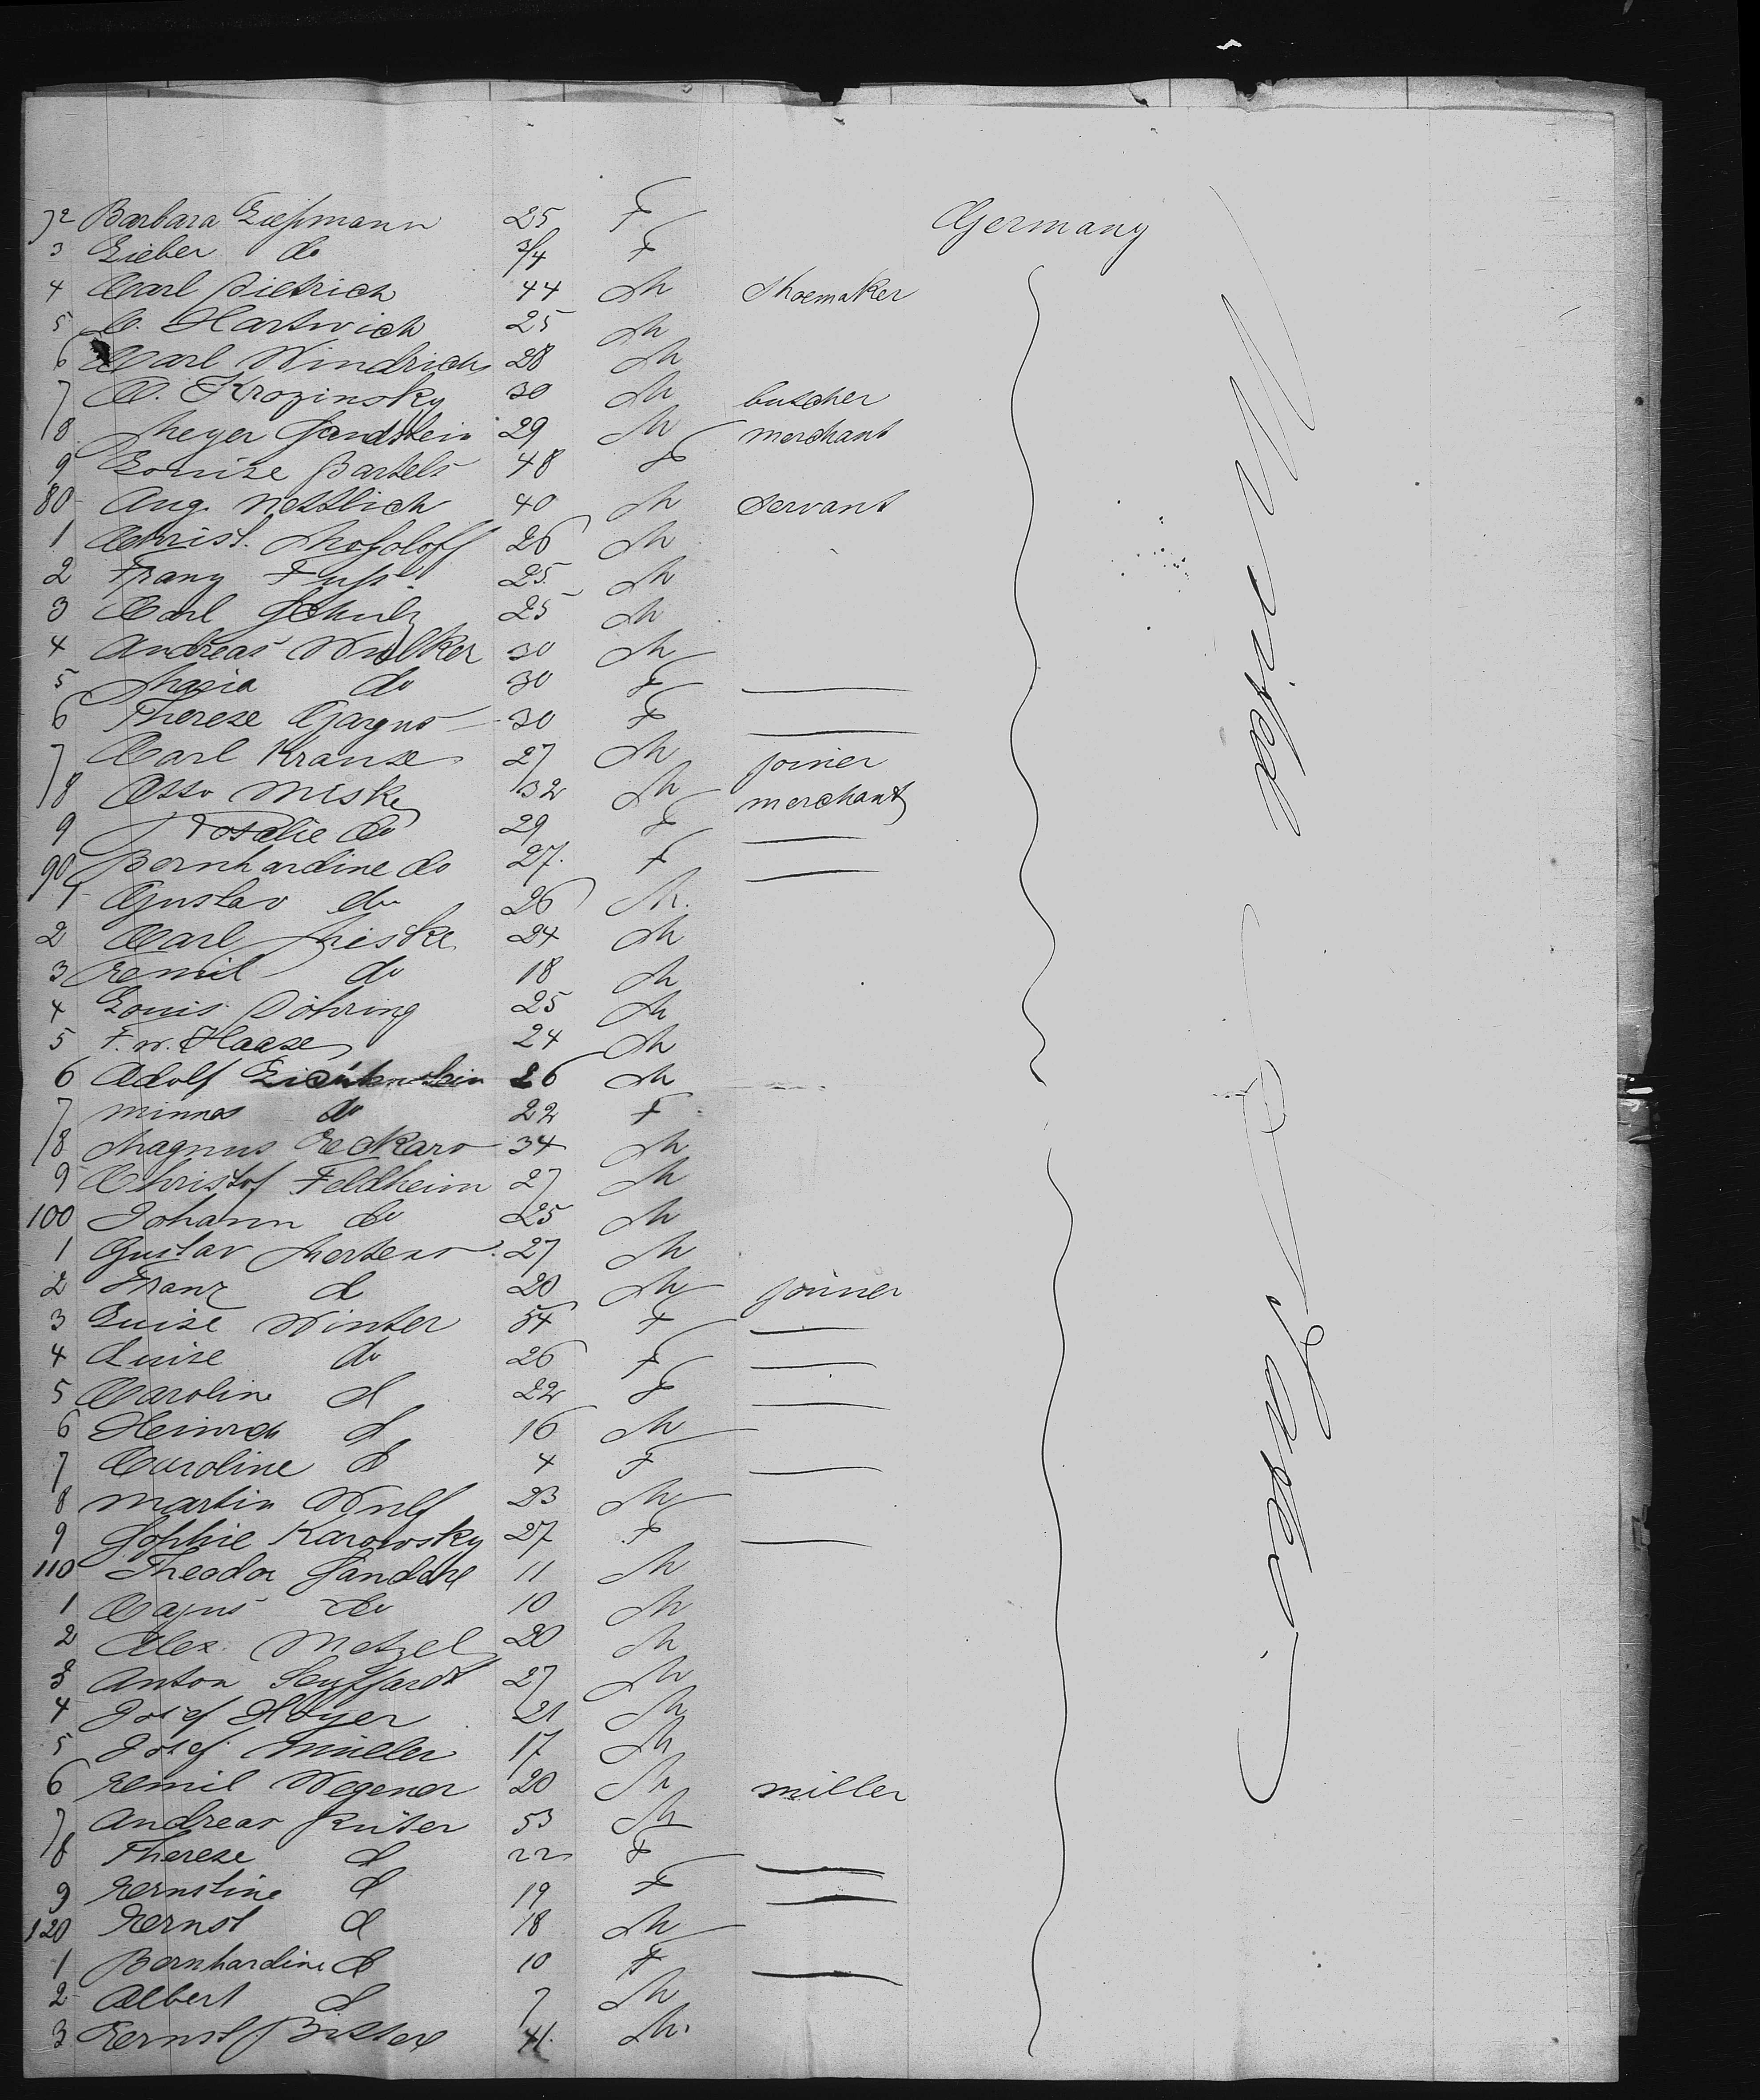 72 Barbara Liessmann 25 F Germany
3 Lieber do 3/4 F
4 Carl Dietrich 44 M Shoemaker
5 C. Hartwich 25 M
6 Carl Windrich 28 M
7 C. Krozinsky 30 M butcher
8 Meyer Sandstein 29 M merchant
9 Louise Bartels 48 F
80 Aug. Nettlich 40 M servant
1 Christ. 26 M
2 Franz Fuss 25 M
3 Carl Schulz 25 M
4 Andreas Wulker 30 M
5 Maria do 30 F —
6 Therese Gargus 30 F —
7 Carl Krause 27 M joiner
8 Otto Miske 32 M merchant
9 Rosalie do 29 F —
90 Bernhardine do 27 F —
1 Gustav do 26 M
2 Carl Miske 24 M
3 Emil do 18 M
4 Louis Döhring 25 M
5 F. W. Haase 24 M
6 Adolf Lichtenstein 26 M
7 Minna do 22 F
8 Magnus Eckard 34 M
9 Christof Feldheim 27 M
100 Johann do 25 M
1 Gustav Mertens 27 M
2 Franz d 20 M joiner
3 Luise Winter 54 F —
4 Luise do 26 F —
5 Caroline d 22 F —
6 Heinrich d 16 M
7 Caroline d 4 F —
8 Martin Wulf 23 M
9 Sophie Karowsky 27 F —
110 Theodor 11 M
1 Cajus do 10 M
2 Alex. Metzel 20 M
3 Anton Seyffardt 27 M
4 Josef Hoyer 21 M
5 Josef Müller 17 M
6 Emil Wegener 20 M miller
7 Andreas Rüter 53 M
8 Therese d 22 F —
9 Ernstine d 19 F —
120 Ernst d 18 M
1 Bernhardine d 10 F —
2 Albert d 7 M
3 Ernst 41 M
United States